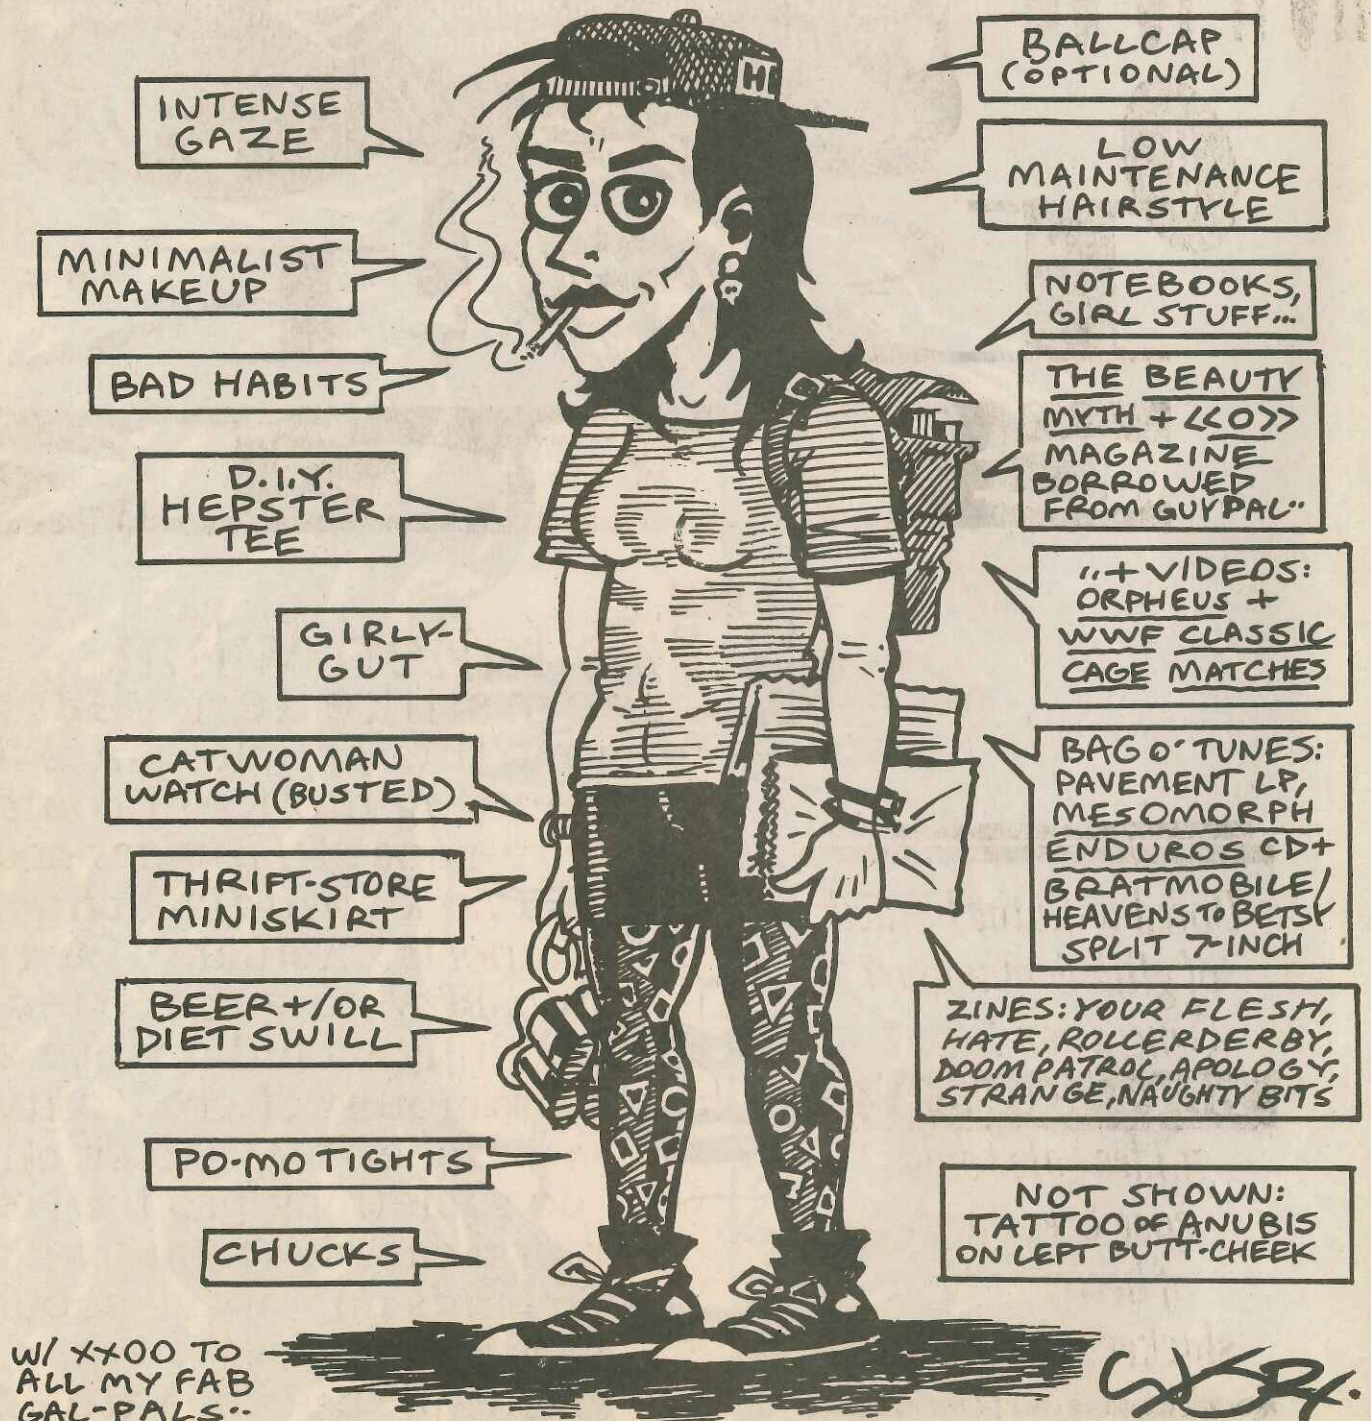 HI
INTENSE
GAZE
MINIMALIST
MAKEUP
BAD HABITS
D.I.Y.
HEPSTER
TEE
GIRLY-
GUT
CATWOMAN
WATCH (BUSTED)
THRIFT-STORE
MINISKIRT
BEER +/OR
DIET SWILL
PO-MO TIGHTS
CHUCKS
W/ XXOO TO
ALL MY FAB
GAL-PALS..
BALLCAP
(OPTIONAL)
LOW
MAINTENANCE
HAIRSTYLE
NOTEBOOKS,
GIRL STUFF...
THE BEAUTY
MYTH + <<O>>
MAGAZINE
BORROWED
FROM GUYPAL..
..+ VIDEOS:
ORPHEUS +
WWF CLASSIC
CAGE MATCHES
BAG O' TUNES:
PAVEMENT LP,
MESOMORPH
ENDUROS CD+
BRATMOBILE/
HEAVENS TO BETSY
SPLIT 7-INCH
ZINES: YOUR FLESH,
HATE, ROLLERDERBY,
DOOM PATROL, APOLOGY,
STRANGE, NAUGHTY BITS
NOT SHOWN:
TATTOO OF ANUBIS
ON LEFT BUTT-CHEEK